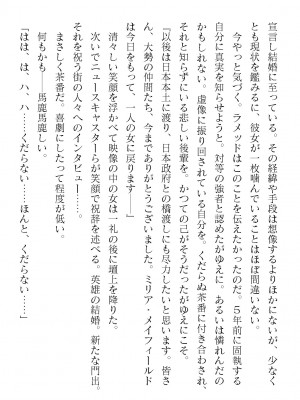 宣言し結婚に至っている。その経緯や手段は想像するよりほかにないが、少なく
とも現状を鑑みるに、彼女が一枚噛んでいることはほぼ間違いない。
今やっと気づく。ラメッドはこのことを伝えたかったのだ。５年前に固執する
自分に真実を知らせようと、対等の強者と認めたがゆえに。あるいは憐れんだの
かもしれない。虚像に振り回されている自分を。くだらぬ茶番に付き合わされ、
それと知らずにいる悲しい後輩を。かつての己がそうだったがゆえにこそ。
『以後は日本本土に渡り、日本政府との橋渡しにも尽力したいと思います。皆さ
ん、大勢の仲間たち、今までありがとうございました。ミリア・メイフィールド
は今日をもって、一人の女に戻ります――』
清々しい笑顔を浮かべて映像の中の女は一礼の後に壇上を降りた。
次いでニュースキャスターらが笑顔で祝辞を述べる。英雄の結婚。新たな門出。
それを祝う街の人々へのインタビュー……。
まさしく茶番だ。喜劇にしたって程度が低い。
何もかも――馬鹿馬鹿しい。
「はは、は、ハ、ハ……くだらない……ほんと、くだらない……」